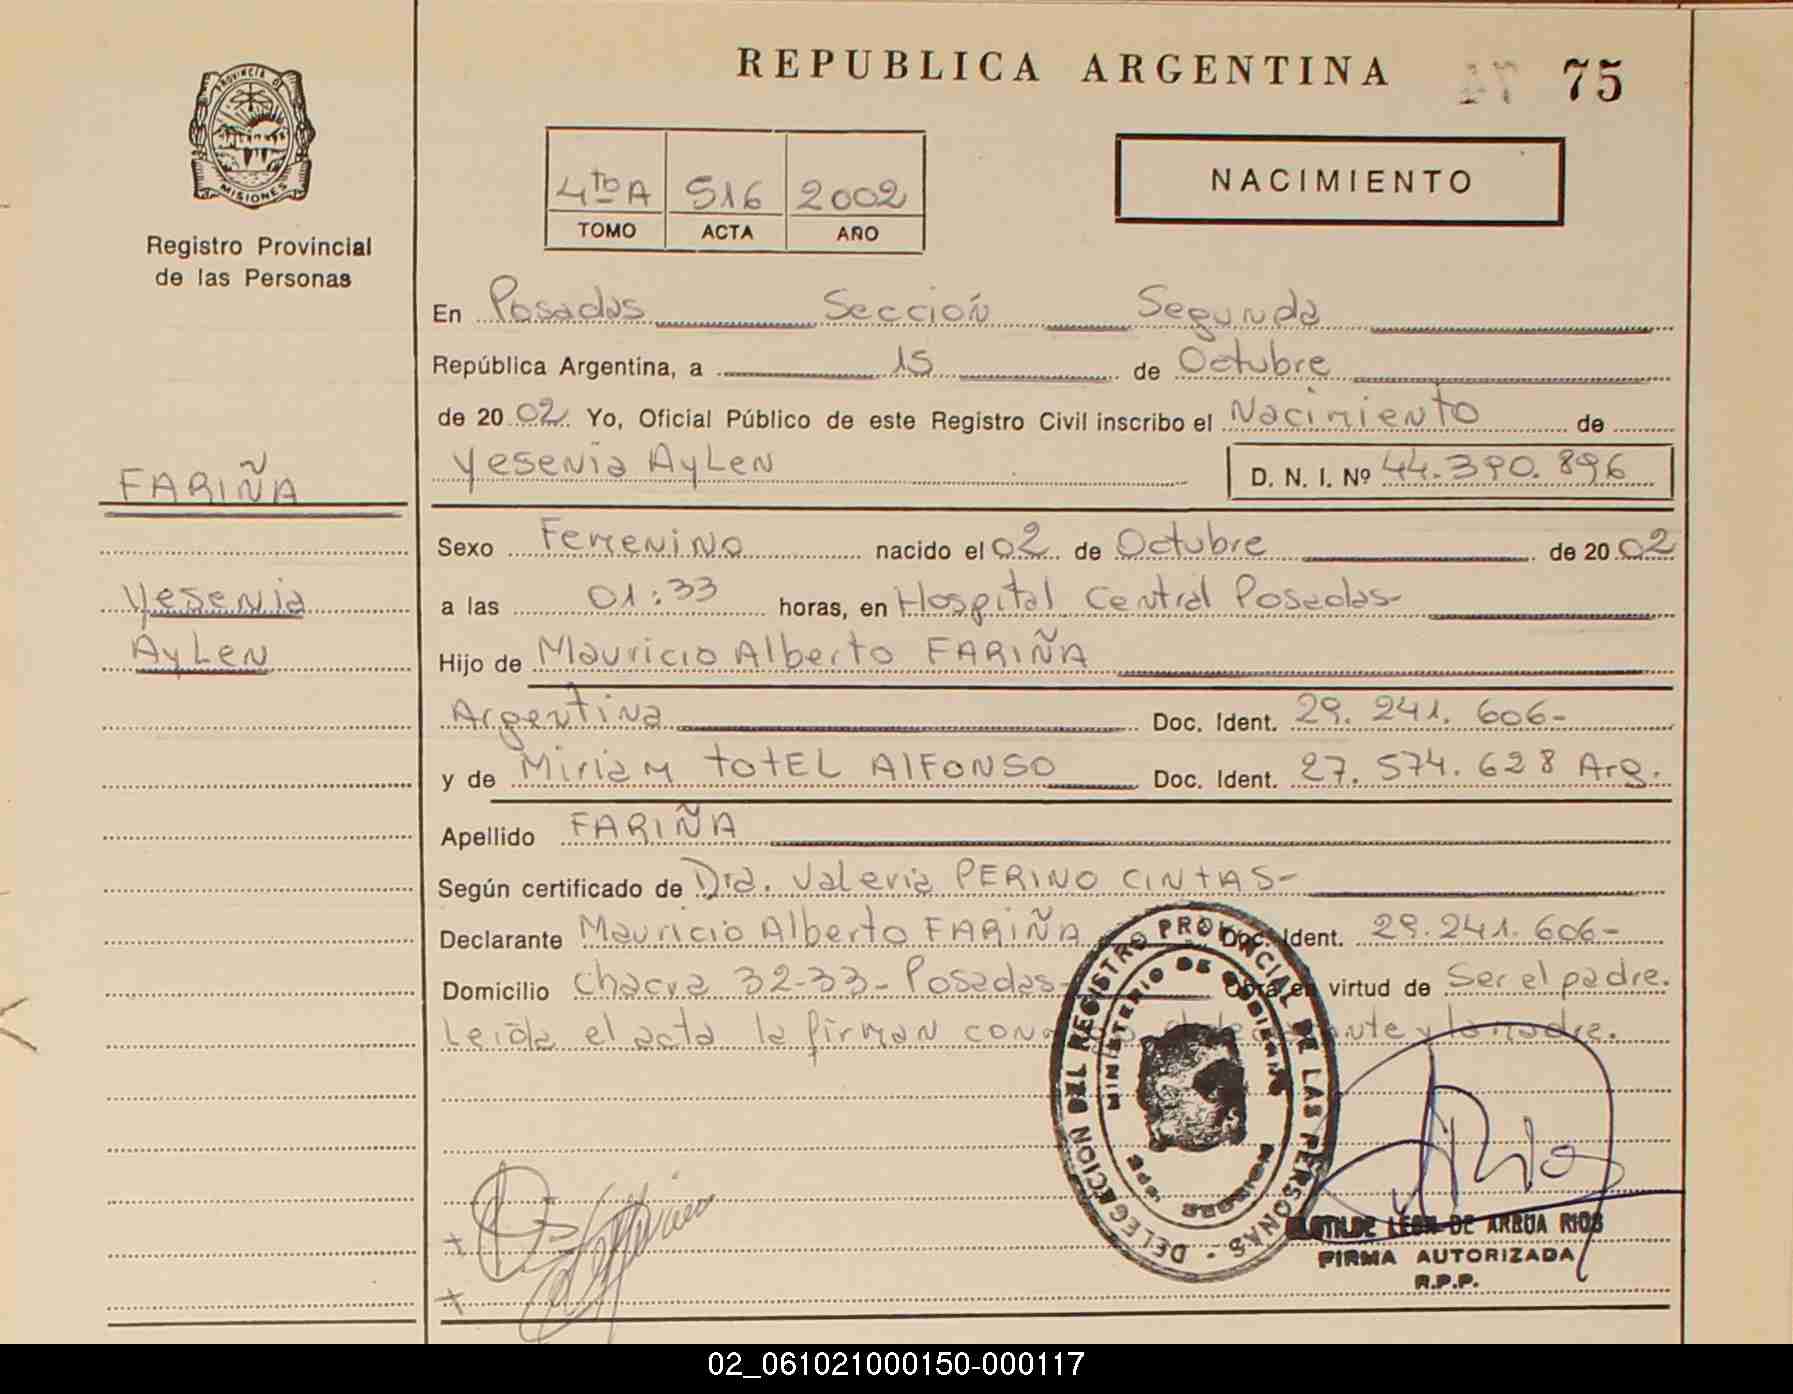 REPUBLICA ARGENTINA
75
PROVINCIA DE
MISIONES
Registro Provincial
de las Personas
4to A 516 2002
TOMO ACTA AÑO
NACIMIENTO
En Posadas Sección Segunda
República Argentina, a 15 de Octubre
de 2002 Yo, Oficial Público de este Registro Civil inscribo el Nacimiento de
Yesenia Aylen D. N. I. Nº 44.390.896
FARIÑA
Yesenia
Aylen
Sexo Femenino nacido el 02 de Octubre de 2002
a las 01:33 horas, en Hospital Central Posadas-
Hijo de Mauricio Alberto FARIÑA
Argentina Doc. Ident. 29.241.606-
y de Miriam totEL AlFONSO Doc. Ident. 27.574.628 Arg.
Apellido FARIÑA
Según certificado de Dra. Valeria PERINO CINTAS-
Declarante Mauricio Alberto FARIÑA Doc. Ident. 29.241.606-
Domicilio Chacra 32-33- Posadas- Obra en virtud de Ser el padre.
Leída el acta la firman y la madre.
DELEGACION DEL REGISTRO PROVINCIAL DE LAS PERSONAS
MINISTERIO DE GOBIERNO
CLOTILDE LEON DE ARRUA RIOS
FIRMA AUTORIZADA
R.P.P.
02_061021000150-000117